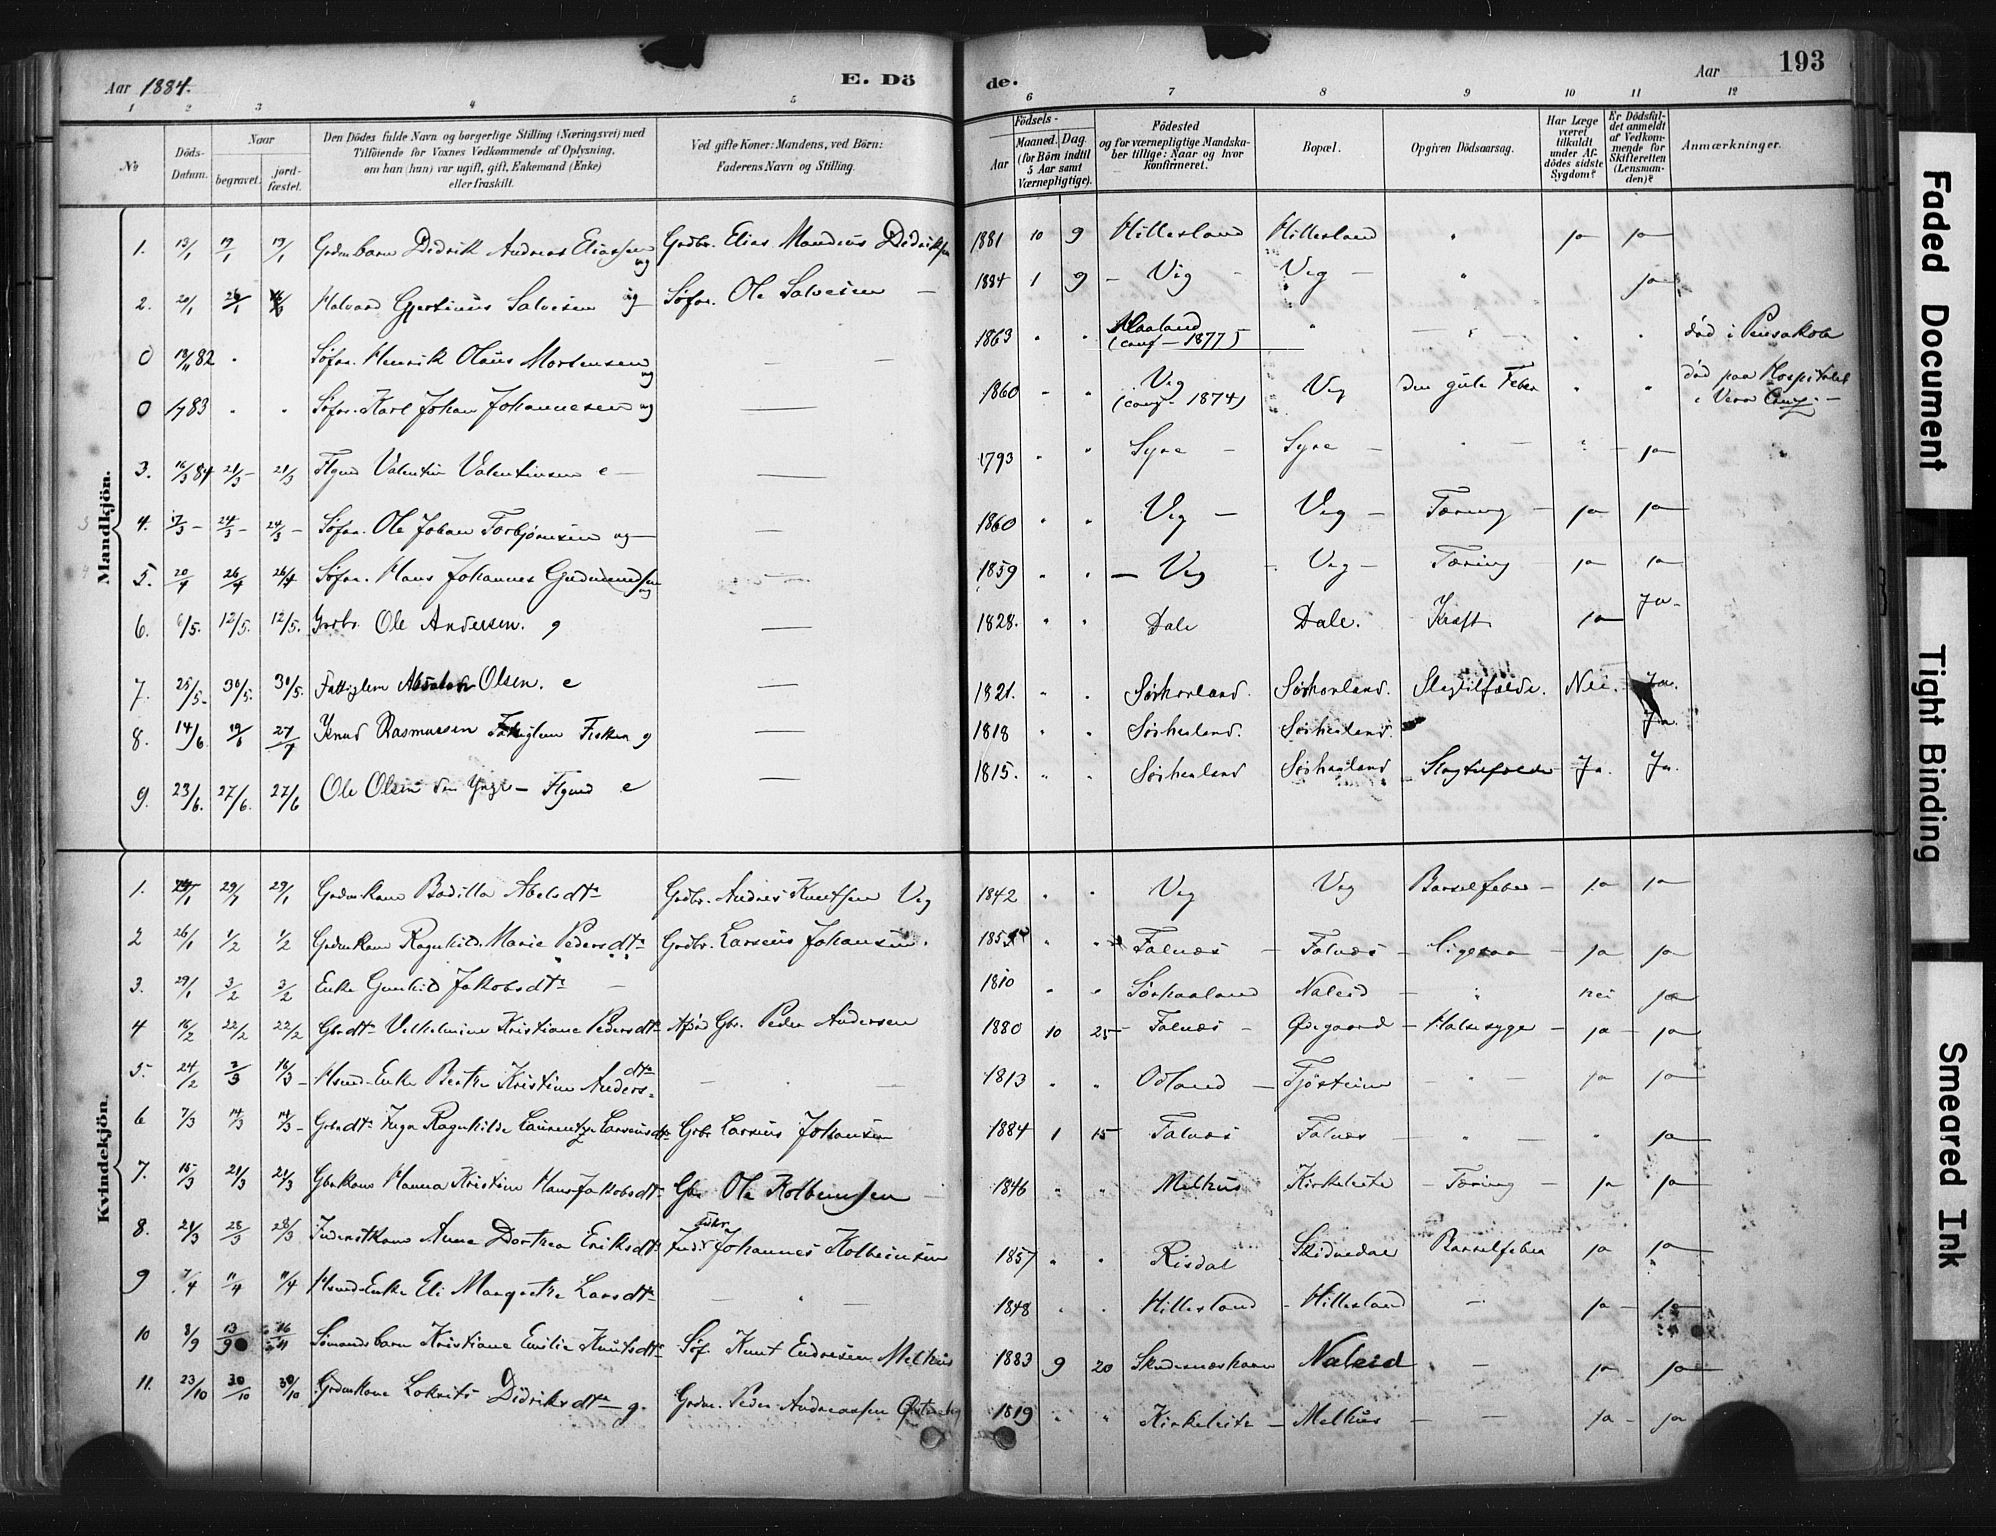 Aar 1884.
E. Dö
de.
Aar
193
1 2 3 4 5 6 7 8 9 10 11 12
No
Döds-
Datum.
Naar
begravet.
jord-
fæstet.
Den Dödes fulde Navn og borgerlige Stilling (Næringsvei) med
Tilföiende for Voxnes Vedkommende af Oplysning,
om han (hun) var ugift, gift, Enkemand (Enke)
eller fraskilt.
Ved gifte Koner: Mandens, ved Börn:
Faderens Navn og Stilling.
Födsels-
Aar
Maaned. Dag.
(for Börn indtil
5 Aar samt
Værnepligtige).
Födested
og for værnepligtige Mandska-
ber tillige: Naar og hvor
konfirmeret.
Bopæl.
Opgiven Dödsaarsag.
Har Læge
været
tilkaldt
under Af-
dödes sidste
Sygdom?
Er Dödsfal-
det anmeldt
af Vedkom-
mende for
Skifteretten
(Lensman-
den)?
Anmærkninger.
Mandkjön.
1. 13/1 19/1 19/1 Grdmbarn Didrik Andreas Eliassen ug Grdbr. Elias Mandeus Didriksen 1881 10 9 Hillesland Hillesland " ja ja
2. 20/1 Halvard Gjertinius Salvesen ug Søfar. Ole Salvesen — 1884 1 9 — Vig — Vig — " ja
0 82 " Søfar. Henrik Olaus Mortensen ug — 1863 " " (conf — 1877) " " " " død i Pensakola
0 83 " " Søfar. Karl Johan Johannesen ug — 1860 " " Vig (conf. 1874) Vig den gule Feber " " død paa Hospitalet i Vera Cruz. —
3. 16/3 84 21/3 — 21/3 Flgmd Valentin Valentinsen e — — 1793 " " Syre — Syre — " — " — ja
4. 17/3 — 24/3 — 24/3 — Søfar. Ole Johan Torbjørnsen ug — — 1860 " " Vig — Vig — Tæring — ja ja
5. 20/4 26/4 26/4 Søfar. Hans Johannes Gudmundsen ug — 1859 " " — Vig — Vig — Tæring — ja ja
6. 6/5. 12/5. 12/5. Grdbr. Ole Andersen. g — 1828. " " Dale Dale. Kræft ja Ja.
7. 25/5. 30/5. 30/5. Fattiglem Absalon Olsen. e — 1821. " " Sørhaaland. Sørhaaland. Slagtilfælde. Nei. Ja.
8. 14/6. 19/6 27/7 Knud Rasmussen Fattiglem Fisker g — 1818 Sørhaaland. Sørhaaland. Ja.
9. 23/6. 27/6. 27/6 Ole Olsen den Yngr — Flgmd e — 1815. " " Sørhaaland Sørhaaland Slagtilfælde Ja. Ja.
Kvindekjön.
1. 29/1 29/1 Grdmkone Bodilla Abelsdtr Grdbr. Andreas Knutsen Vig 1842 " " Vig Vig Barselfeber — ja ja
2 26/1 1/2 1/2 Grdmkone Ragnhild Marie Pedersdtr Grdbr. Larseus Johansen. " " Falnæs — Falnæs — ligesaa — ja ja
3. 29/1 3/2 3/2 Enke Gunhild Jakobsdtr — 1810 " " Sørhaaland Naleid — " nei ja
4 16/2 22/2 22/2 Gbrdtr Vilhelmine Kristiane Pedersdtr Afdød Gbr. Peder Andersen 1880 10 25 — Falnæs — Øvegaard — Halssyge — ja — ja
5. 24/2 3/3 16/3 — Hsmd. Enke Berthe Kristine Andersdtr — " — 1813 " " Odland — Tjøstheim — " — ja ja
6 7/3 14/3 14/3 — Grbrdtr Inga Ragnhilde Laurentze Larseusdtr Grbr Larseus Johansen 1884 1 15 Falnæs Falnæs — " — " ja
7. 15/3 21/3 21/3 Gbrkone Hanna Kristine Hans Jakobsdtr Gbr Ole Kolbeinsen — 1846 " " Melhus Kirkeleite — Tæring — ja ja
8. 21/3 28/3 28/3 Inderstkone Anne Dorthea Eriksdtr Inderst Johannes Kolbeinsen 1857 " " Risdal Skidnedal Barselfeber ja ja
9 7/4 11/4 11/4 Hsmd. Enke Eli Margrethe Larsdtr — " — 1848 " " Hillesland — Hillesland — ja — ja
10 8/9 13/9 16/11 Sømandsbarn Kristiane Emilie Knutsdtr Søf. Knut Endresen Melhus 1883 9 20 Skudesneshavn Naleid — ja ja
11. 23/10 30/10 30/10 Grdmkone Lokrits Didriksdtr — g. Grdm. Peder Andreassen 1819 " " Kirkeleite — Melhus — — ja — ja
Faded Document
Tight Binding
Smeared Ink